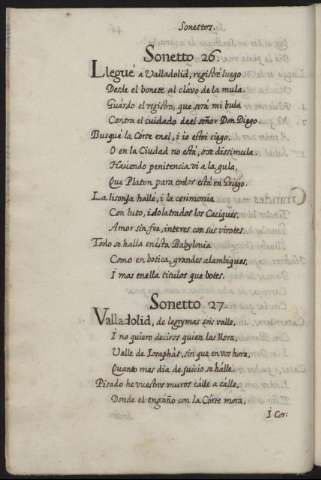 Sonettos.
Sonetto 26
Llegué a Valladolid, registré luego
Desde el bonete al clavo de la mula.
Guardo el registro, que será mi bula
Contra el cuidado de el señor Don Diego.
Busqué la Corte en el, i io estoi ciego,
O en la Ciudad no està, o se dissimula.
Haciendo penitencia vi a la gula,
Que Platon para todos està en Griego.
La lisonja hallé, i la ceremonia
Con luto, idolatrados los Caciques,
Amor sin fee, interes con sus virotes.
Todo se halla en esta Babylonia
Como en botica, grandes alambiques,
I mas en ella titulos que botes.
Sonetto 27
Valladolid, de lagrymas sois valle,
I no quiero deciros quien las llora,
Valle de Iosaphat, sin que en vos hora,
Quanto mas dia de juicio se halle.
Pisado he vuestros muros calle a calle,
Donde el engaño con la Corte mora,
I Cor: